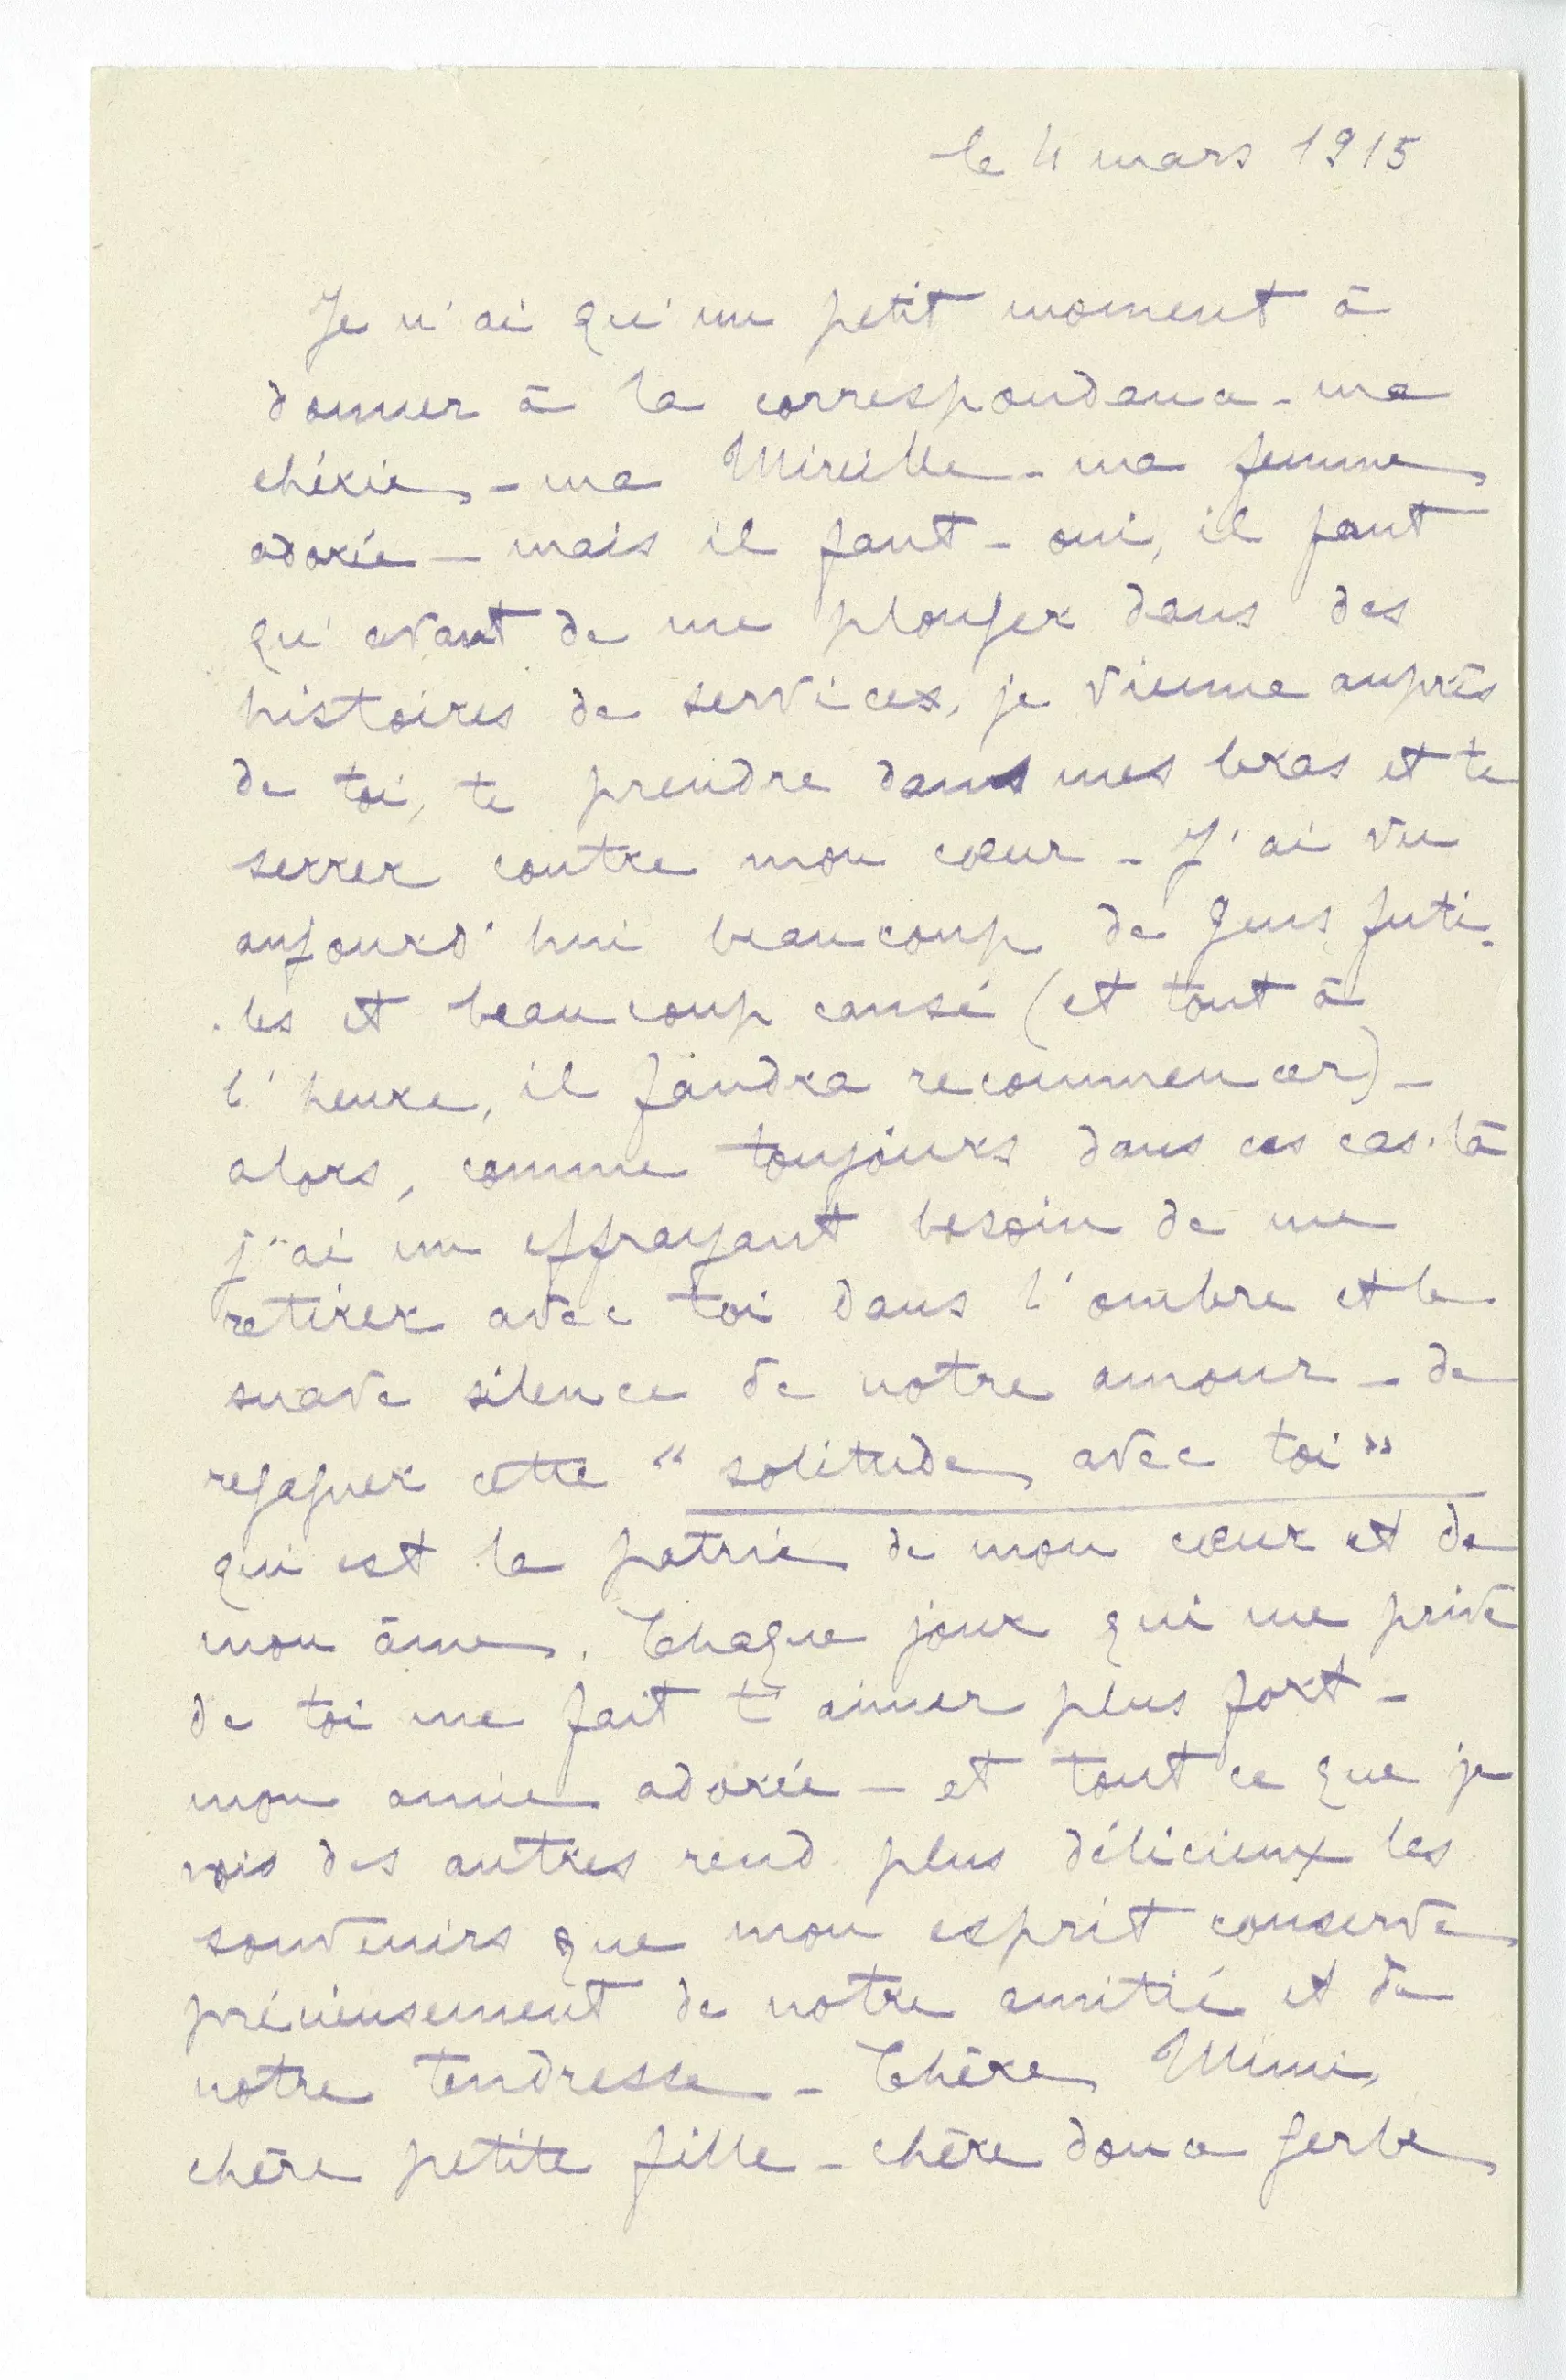 le 4 mars 1915
Je n'ai qu'un petit moment à
donner à la correspondance - ma
chérie, - ma Mireille - ma femme
adorée - mais il faut - oui, il faut
qu'avant de me plonger dans des
histoires de services, je vienne auprès
de toi, te prendre dans mes bras et te
serrer contre mon cœur - J'ai vu
aujourd'hui beaucoup de gens futi-
-les et beaucoup causé (et tout à
l'heure, il faudra recommencer) -
alors, comme toujours dans ces cas-là
j'ai un effrayant besoin de me
retirer avec toi dans l'ombre et le
suave silence de notre amour - de
regagner cette "solitude avec toi"
qui est la patrie de mon cœur et de
mon âme. Chaque jour qui me prive
de toi me fait t'aimer plus fort -
mon amie adorée - et tout ce que je
vois des autres rend plus délicieux les
souvenirs que mon esprit conserve
précieusement de notre amitié et de
notre tendresse - Chère Mimi,
chère petite fille - chère douce gerbe